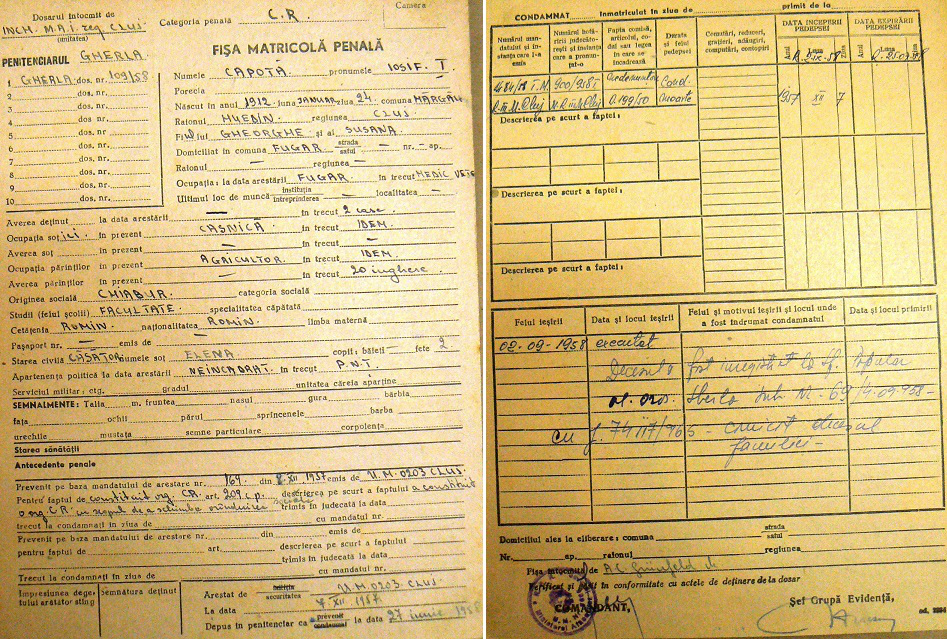 Dosarul întocmit de
INCH. M.A.I. reg CLUJ
(unitatea)
Categoria penala C.R.
Camera
PENITENCIARUL GHERLA
FIȘA MATRICOLĂ PENALĂ
1 GHERLA dos. nr. 109/58
2 dos. nr.
3 dos. nr.
4 dos. nr.
5 dos. nr.
6 dos. nr.
7 dos. nr.
8 dos. nr.
9 dos. nr.
10 dos. nr.
Numele CAPOTĂ pronumele IOSIF. T.
Porecla
Născut în anul 1912 luna JANUAR ziua 24. comuna MĂRGĂU
Raionul HUEDIN regiunea CLUJ
Fiul lui GHEORGHE și al SUSANA
Domiciliat în comuna FUGAR strada satul — nr. — ap.
Raionul — regiunea —
Ocupația: la data arestării FUGAR în trecut MEDIC VETE
Ultimul loc de muncă instituția întreprinderea — localitatea —
Averea deținut la data arestării — în trecut 2 case.
Ocupația soției în prezent CASNICĂ în trecut IDEM.
Averea soț în prezent — în trecut —
Ocupația părinților în prezent AGRICULTOR. în trecut IDEM.
Averea părinților în prezent — în trecut 20 iughere.
Originea socială CHIABUR. categoria socială
Studii (felul școlii) FACULTATE specialitatea căpătată
Cetățenia ROMÎN. naționalitatea ROMÎN. limba maternă
Pașaport nr. — emis de —
Starea civilă CĂSĂTOR numele soț ELENA copii: băieți — fete 2
Apartenența politică la data arestării NEÎNCADRAT. în trecut P.N.T.
Serviciul militar: ctg. gradul unitatea căreia aparține
SEMNALMENTE: Talia m. fruntea nasul gura bărbia
fața ochii părul sprîncenele barba
urechile mustața semne particulare corpolența
Starea sănătății
Antecedente penale
Prevenit pe baza mandatului de arestare nr. 169. din 8.XII.1957 emis de U.M.0203 CLUJ.
Pentru faptul de constituit org. CR. art. 209 c.p. descrierea pe scurt a faptului a constituit
o org. C.R. cu scopul de a schimba orînduirea trimis în judecată la data
trecut la condamnați în ziua de cu mandatul nr.
Prevenit pe baza mandatului de arestare nr. din emis de
pentru faptul de art. descrierea pe scurt a faptului
trimis în judecată la data
Trecut la condamnați în ziua de cu mandatul nr.
Impresiunea degetului arătător stîng
Semnătura deținut
Arestat de securitatea U.M.0203 CLUJ.
La data 7 XII. 1957
Depus în penitenciar ca prevenit condamnat la data 27 iunie 1958
CONDAMNAT, înmatriculat în ziua de primit de la
Numărul mandatului și instanța care l-a emis
Numărul hotărîrii judecătorești și instanța care a pronunțat-o
Fapta comisă, articolul, codul sau legea în care se încadrează
Durata și felul pedepsei
Comutări, reduceri, grațieri, adăugiri, computări, contopiri
DATA ÎNCEPERII PEDEPSEI
DATA EXPIRĂRII PEDEPSEI
Anul Luna Ziua
Anul Luna Ziua
T.M. Cluj
Cond. moarte
1957 XII 7
Descrierea pe scurt a faptei:
Descrierea pe scurt a faptei:
Descrierea pe scurt a faptei:
Felul ieșirii
Data și locul ieșirii
Felul și motivul ieșirii și locul unde a fost îndrumat condamnatul
Data și locul primirii
02-09-1958 executat
Decesul a fost înregistrat la Sf. popular
al oraș. Gherla sub Nr. 69/4-09-958-
cu comunicat decesul
familiei-
Domiciliul ales la eliberare: comuna strada satul
Nr. ap. raionul regiunea
Fișa întocmită de
Verificat și găsit în conformitate cu actele de deținere de la dosar
COMANDANT,
Șef Grupă Evidență,